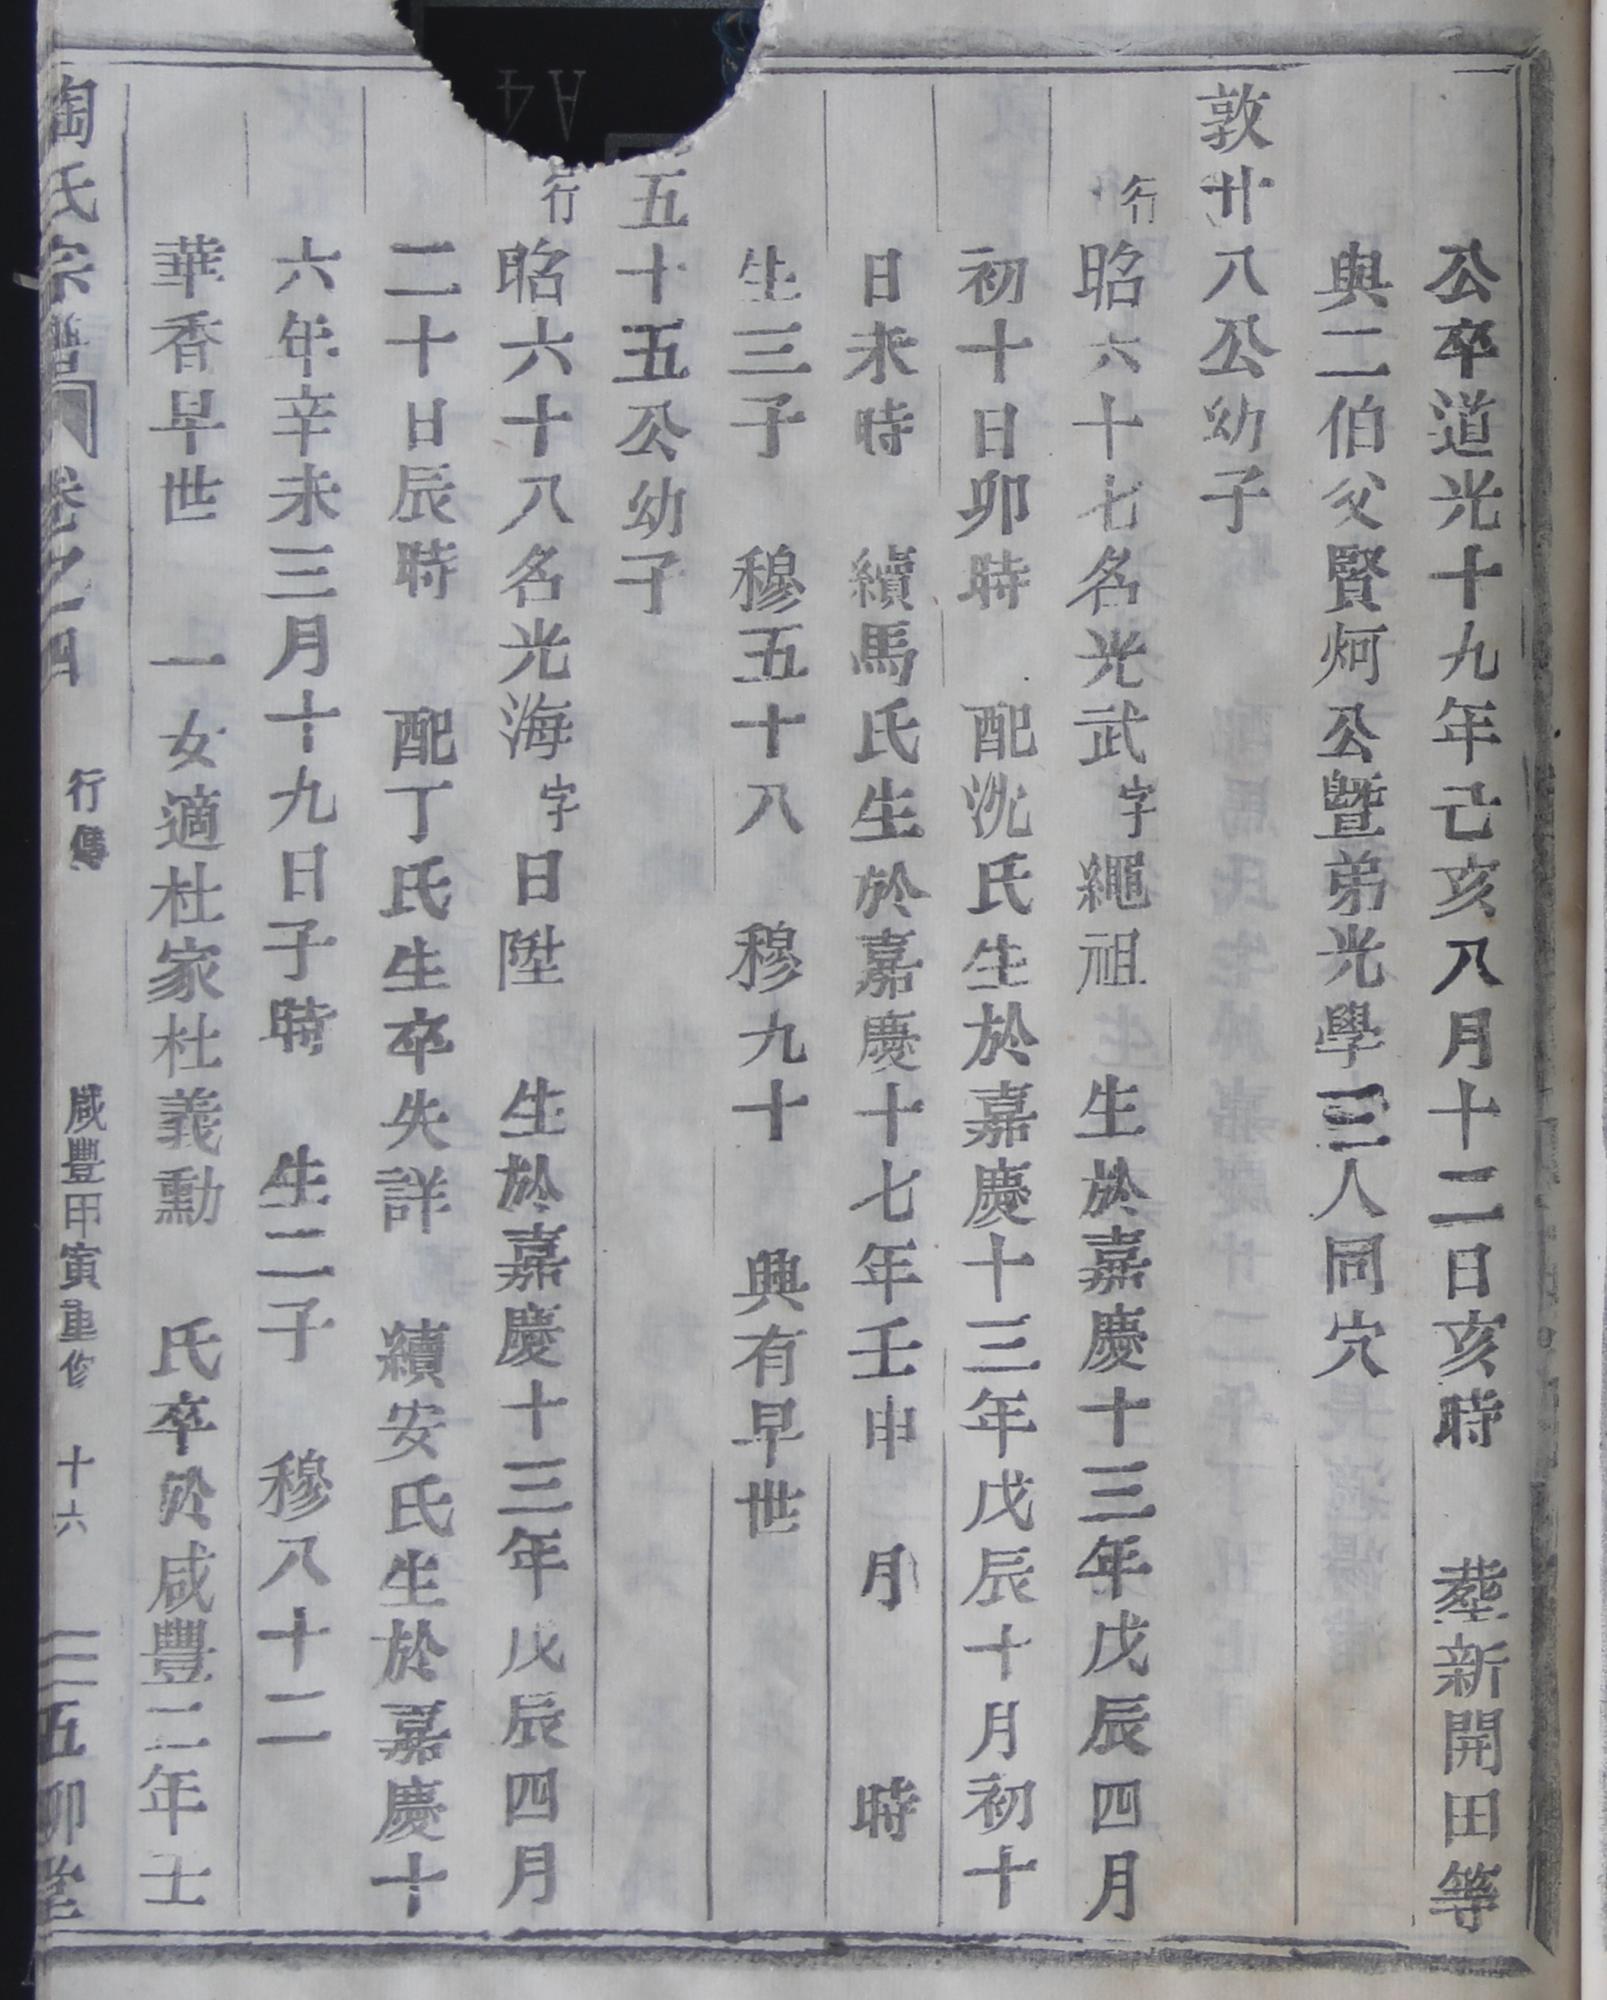 公卒道光十九年己亥八月十二日亥時　塟新開田等
與二伯父賢炯公暨弟光學三人同穴
敦廿八公幼子
行昭六十七名光武字繩祖　生於嘉慶十三年戊辰四月
初十日卯時　配沈氏生於嘉慶十三年戊辰十月初十
日未時　續馬氏生於嘉慶十七年壬申　月　　時
生三子　穆五十八　穆九十　興有早世
五十五公幼子
行昭六十八名光海字日陞　生於嘉慶十三年戊辰四月
二十日辰時　配丁氏生卒失詳　續安氏生於嘉慶十
六年辛未三月十九日子時　生二子　穆八十二
華香早世　一女適杜家杜義勳　氏卒於咸豐二年壬
陶氏宗譜　卷之四　行傳　咸豐甲寅重修　十六　五柳堂
A4